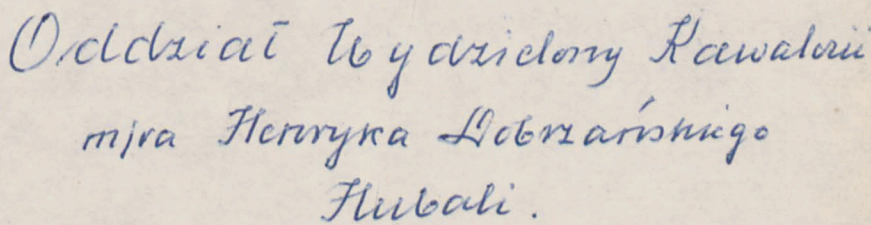 Oddział Wydzielony Kawalerii
mjra Henryka Dobrzańskiego
Hubali.